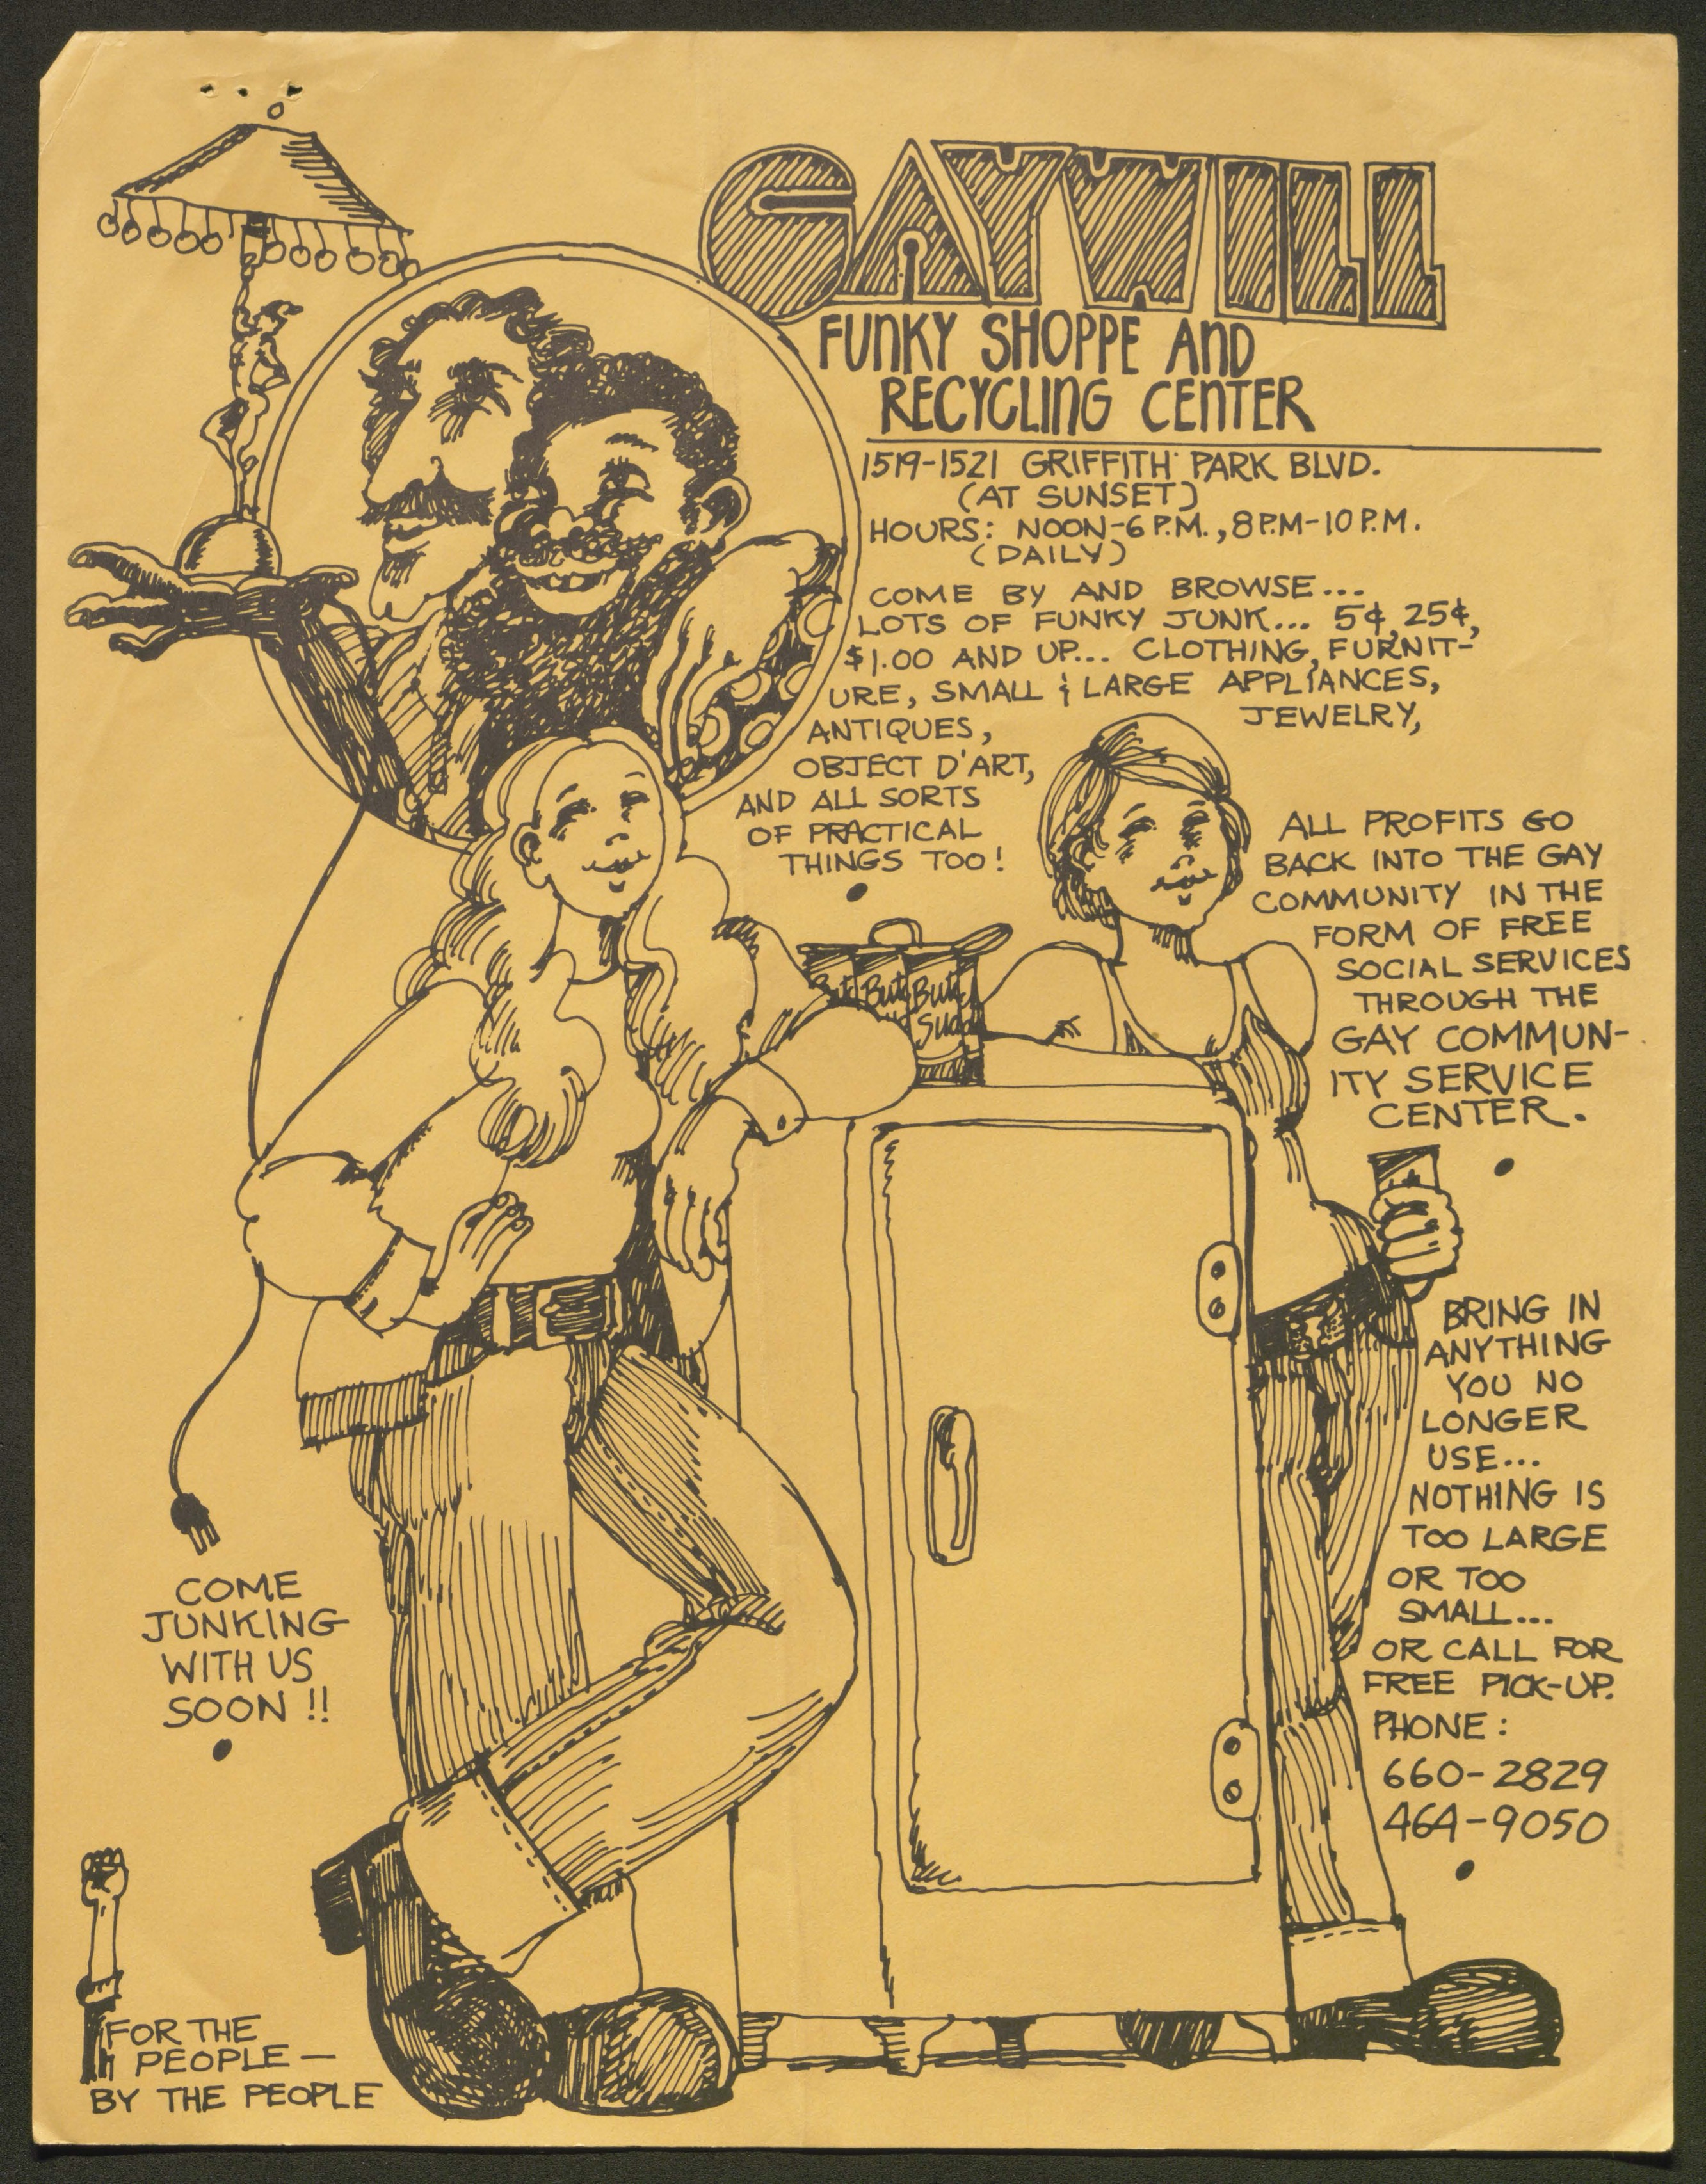 GAYWILL
FUNKY SHOPPE AND
RECYCLING CENTER
1519-1521 GRIFFITH PARK BLVD.
(AT SUNSET)
HOURS: NOON-6 P.M., 8 P.M-10 P.M.
(DAILY)
COME BY AND BROWSE...
LOTS OF FUNKY JUNK... 5¢, 25¢,
$1.00 AND UP... CLOTHING, FURNIT-
URE, SMALL & LARGE APPLIANCES,
JEWELRY,
ANTIQUES,
OBJECT D'ART,
AND ALL SORTS
OF PRACTICAL
THINGS TOO!
ALL PROFITS GO
BACK INTO THE GAY
COMMUNITY IN THE
FORM OF FREE
SOCIAL SERVICES
THROUGH THE
GAY COMMUN-
ITY SERVICE
CENTER.
BRING IN
ANYTHING
YOU NO
LONGER
USE...
NOTHING IS
TOO LARGE
OR TOO
SMALL...
OR CALL FOR
FREE PICK-UP.
PHONE:
660-2829
464-9050
COME
JUNKING
WITH US
SOON!!
FOR THE
PEOPLE—
BY THE PEOPLE